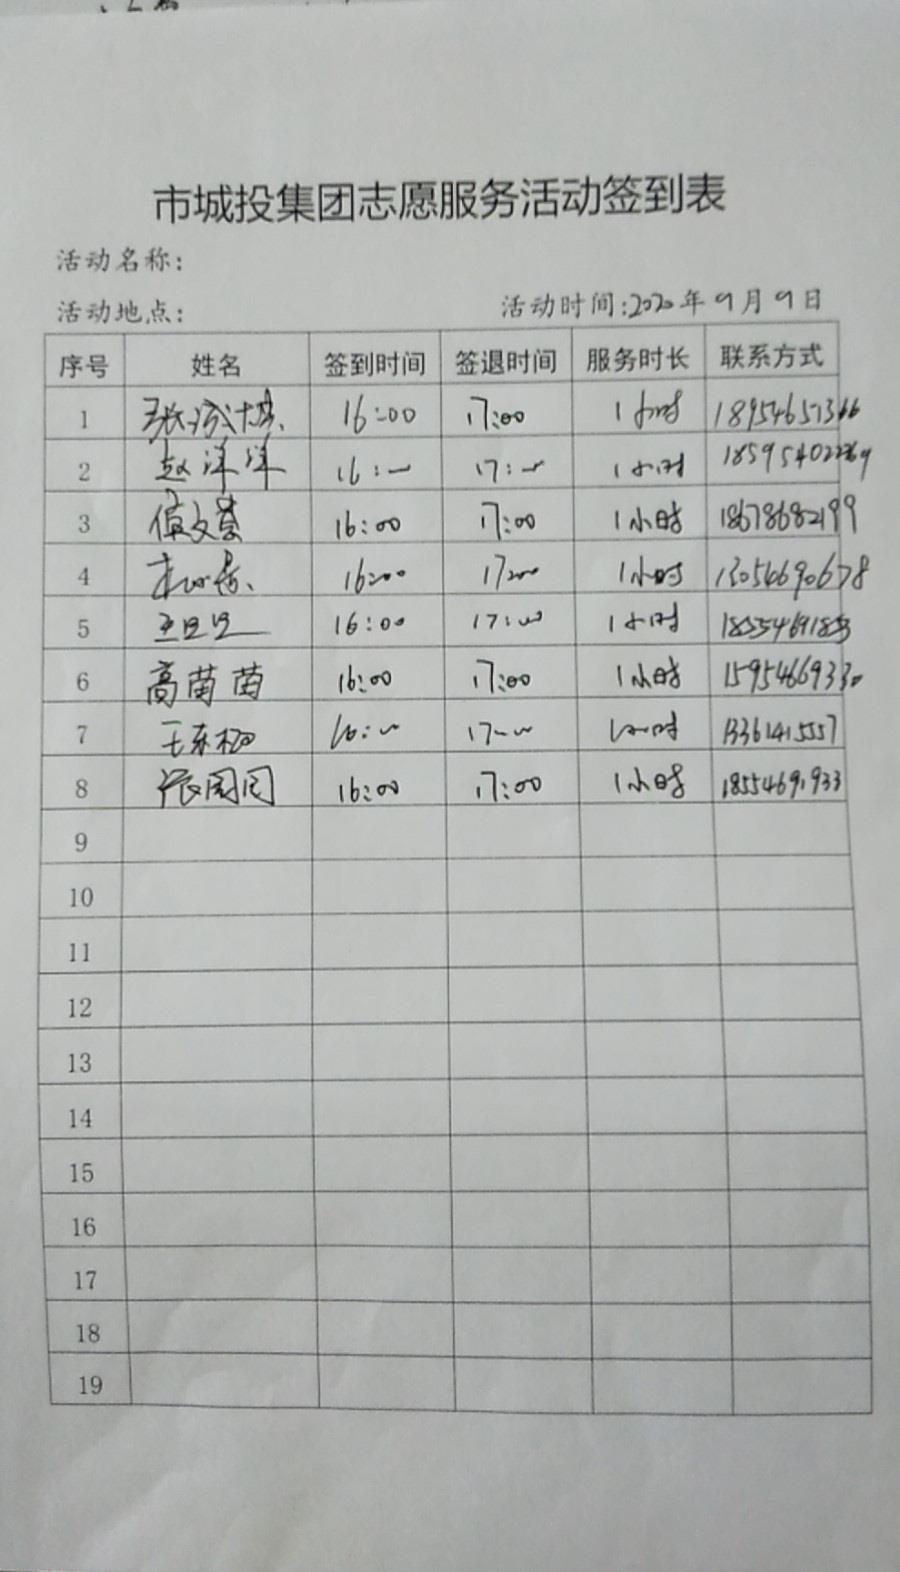 市城投集团志愿服务活动签到表
活动名称：
活动地点： 活动时间:2020年9月9日
序号 姓名 签到时间 签退时间 服务时长 联系方式
1 16:00 17:00 1小时 18954651366
2 赵洋洋 16:00 17:00 1小时
3 16:00 17:00 1小时 18678682199
4 16:00 17:00 1小时 13054690678
5 16:00 17:00 1小时
6 高苗苗 16:00 17:00 1小时 15954669330
7 16:00 17:00 1小时 13361415557
8 张园园 16:00 17:00 1小时 18554691933
9
10
11
12
13
14
15
16
17
18
19